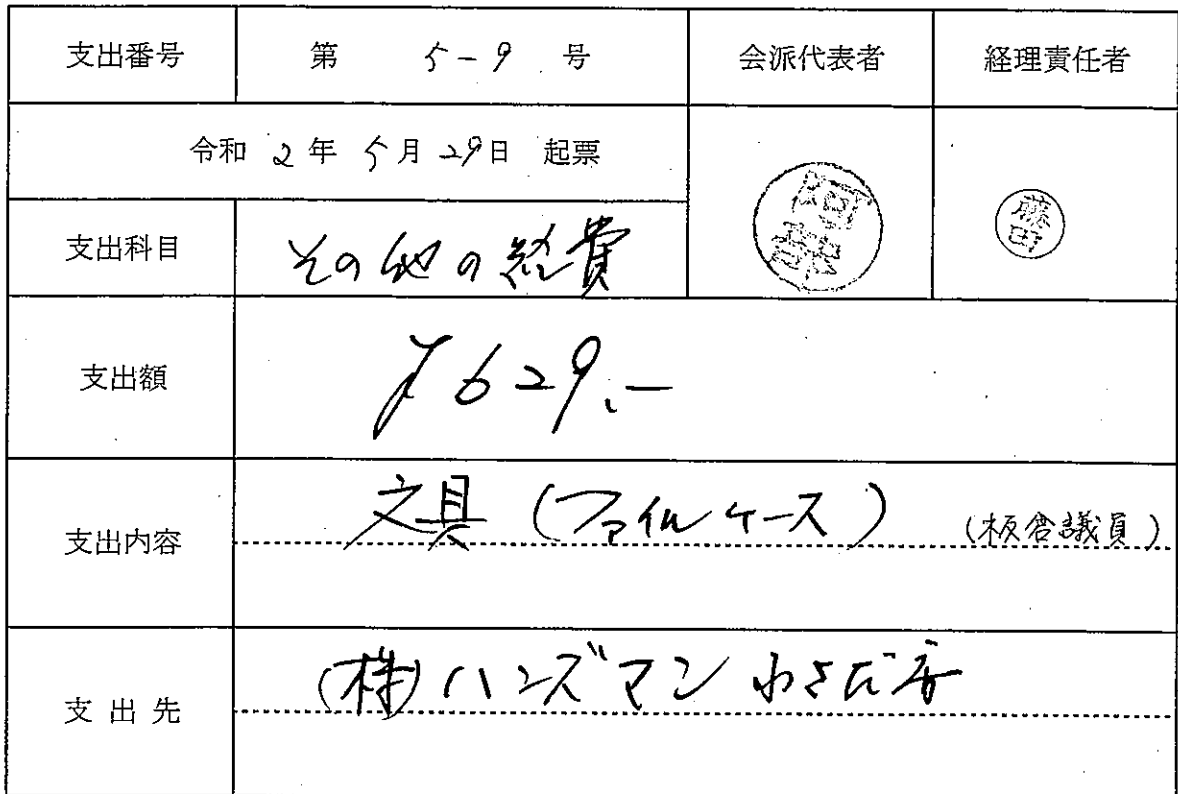 支出番号 第 5-9 号 会派代表者 経理責任者
令和 2 年 5 月 29 日 起票
阿部
藤田
支出科目 その他の経費
支出額 ¥629.-
支出内容 文具 (ファイルケース) (板倉議員)
支出先 (株)ハンズマン わさだ店